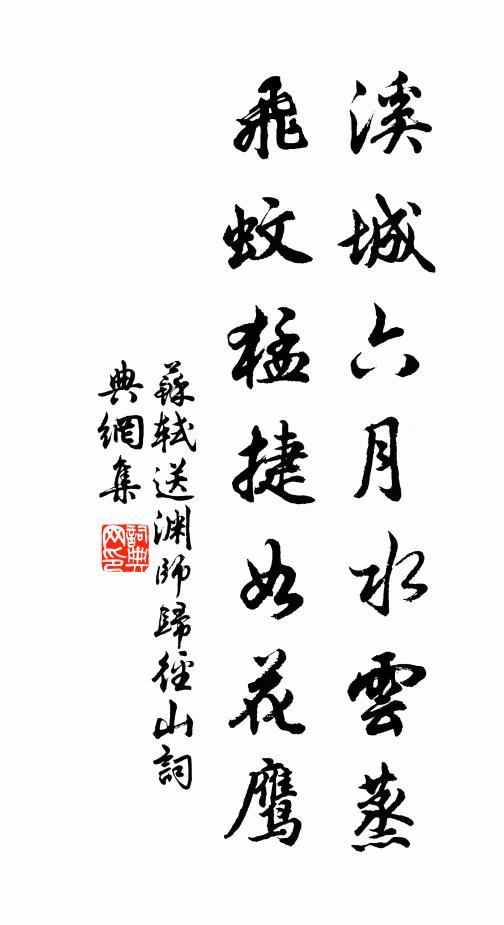 溪城六月水雲蒸
飛蚊猛捷如花鷹
蘇軾送淵師歸徑山詞
典網集
詞典
网印